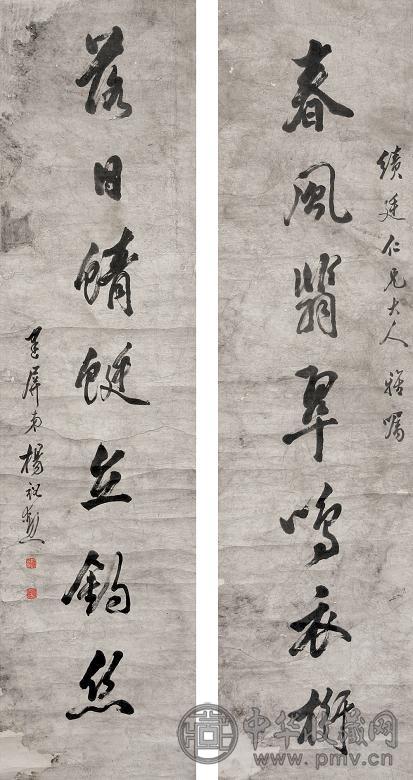 績廷仁兄大人 雅囑
春風翡翠鳴衣桁
落日蜻蜓立釣絲
屏弟楊祝
中华收藏网
www.pmv.cn